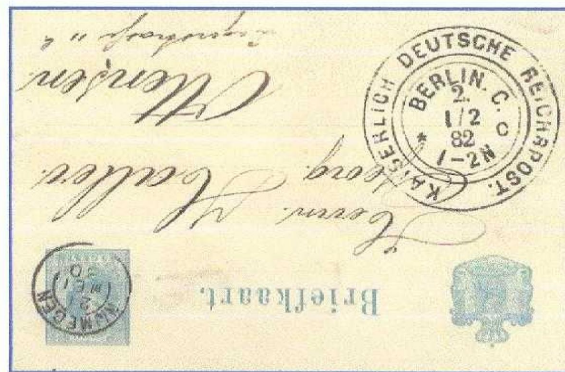 Briefkaart.
NYMEGEN
MEI
Herrn.
Georg.
Ottensen
KAISERLICH DEUTSCHE REICHSPOST.
BERLIN. C.
2.
1/2
82
* 1-2N C